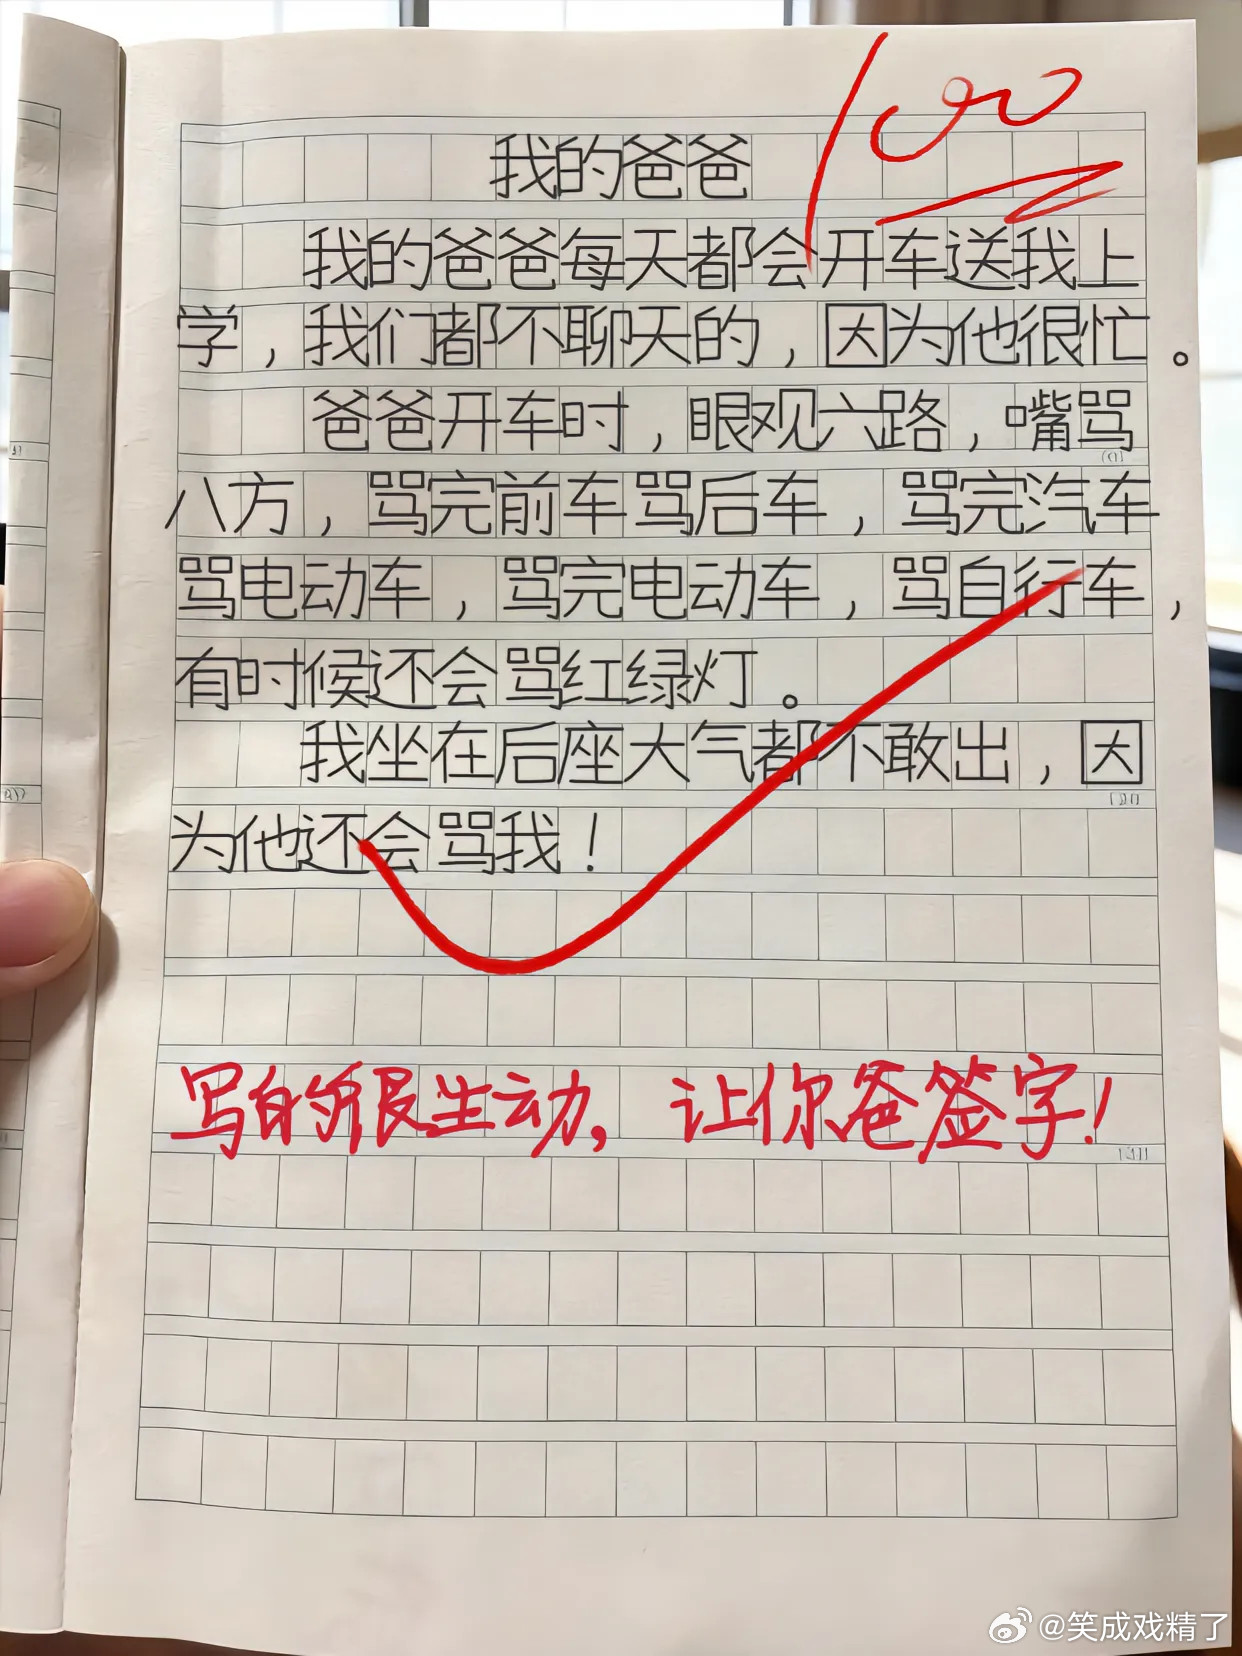 100
我的爸爸
我的爸爸每天都会开车送我上
学，我们都不聊天的，因为他很忙。
爸爸开车时，眼观六路，嘴骂
八方，骂完前车骂后车，骂完汽车
骂电动车，骂完电动车，骂自行车，
有时候还会骂红绿灯。
我坐在后座大气都不敢出，因
为他还会骂我！
写的很生动，让你爸签字！
@笑成戏精了